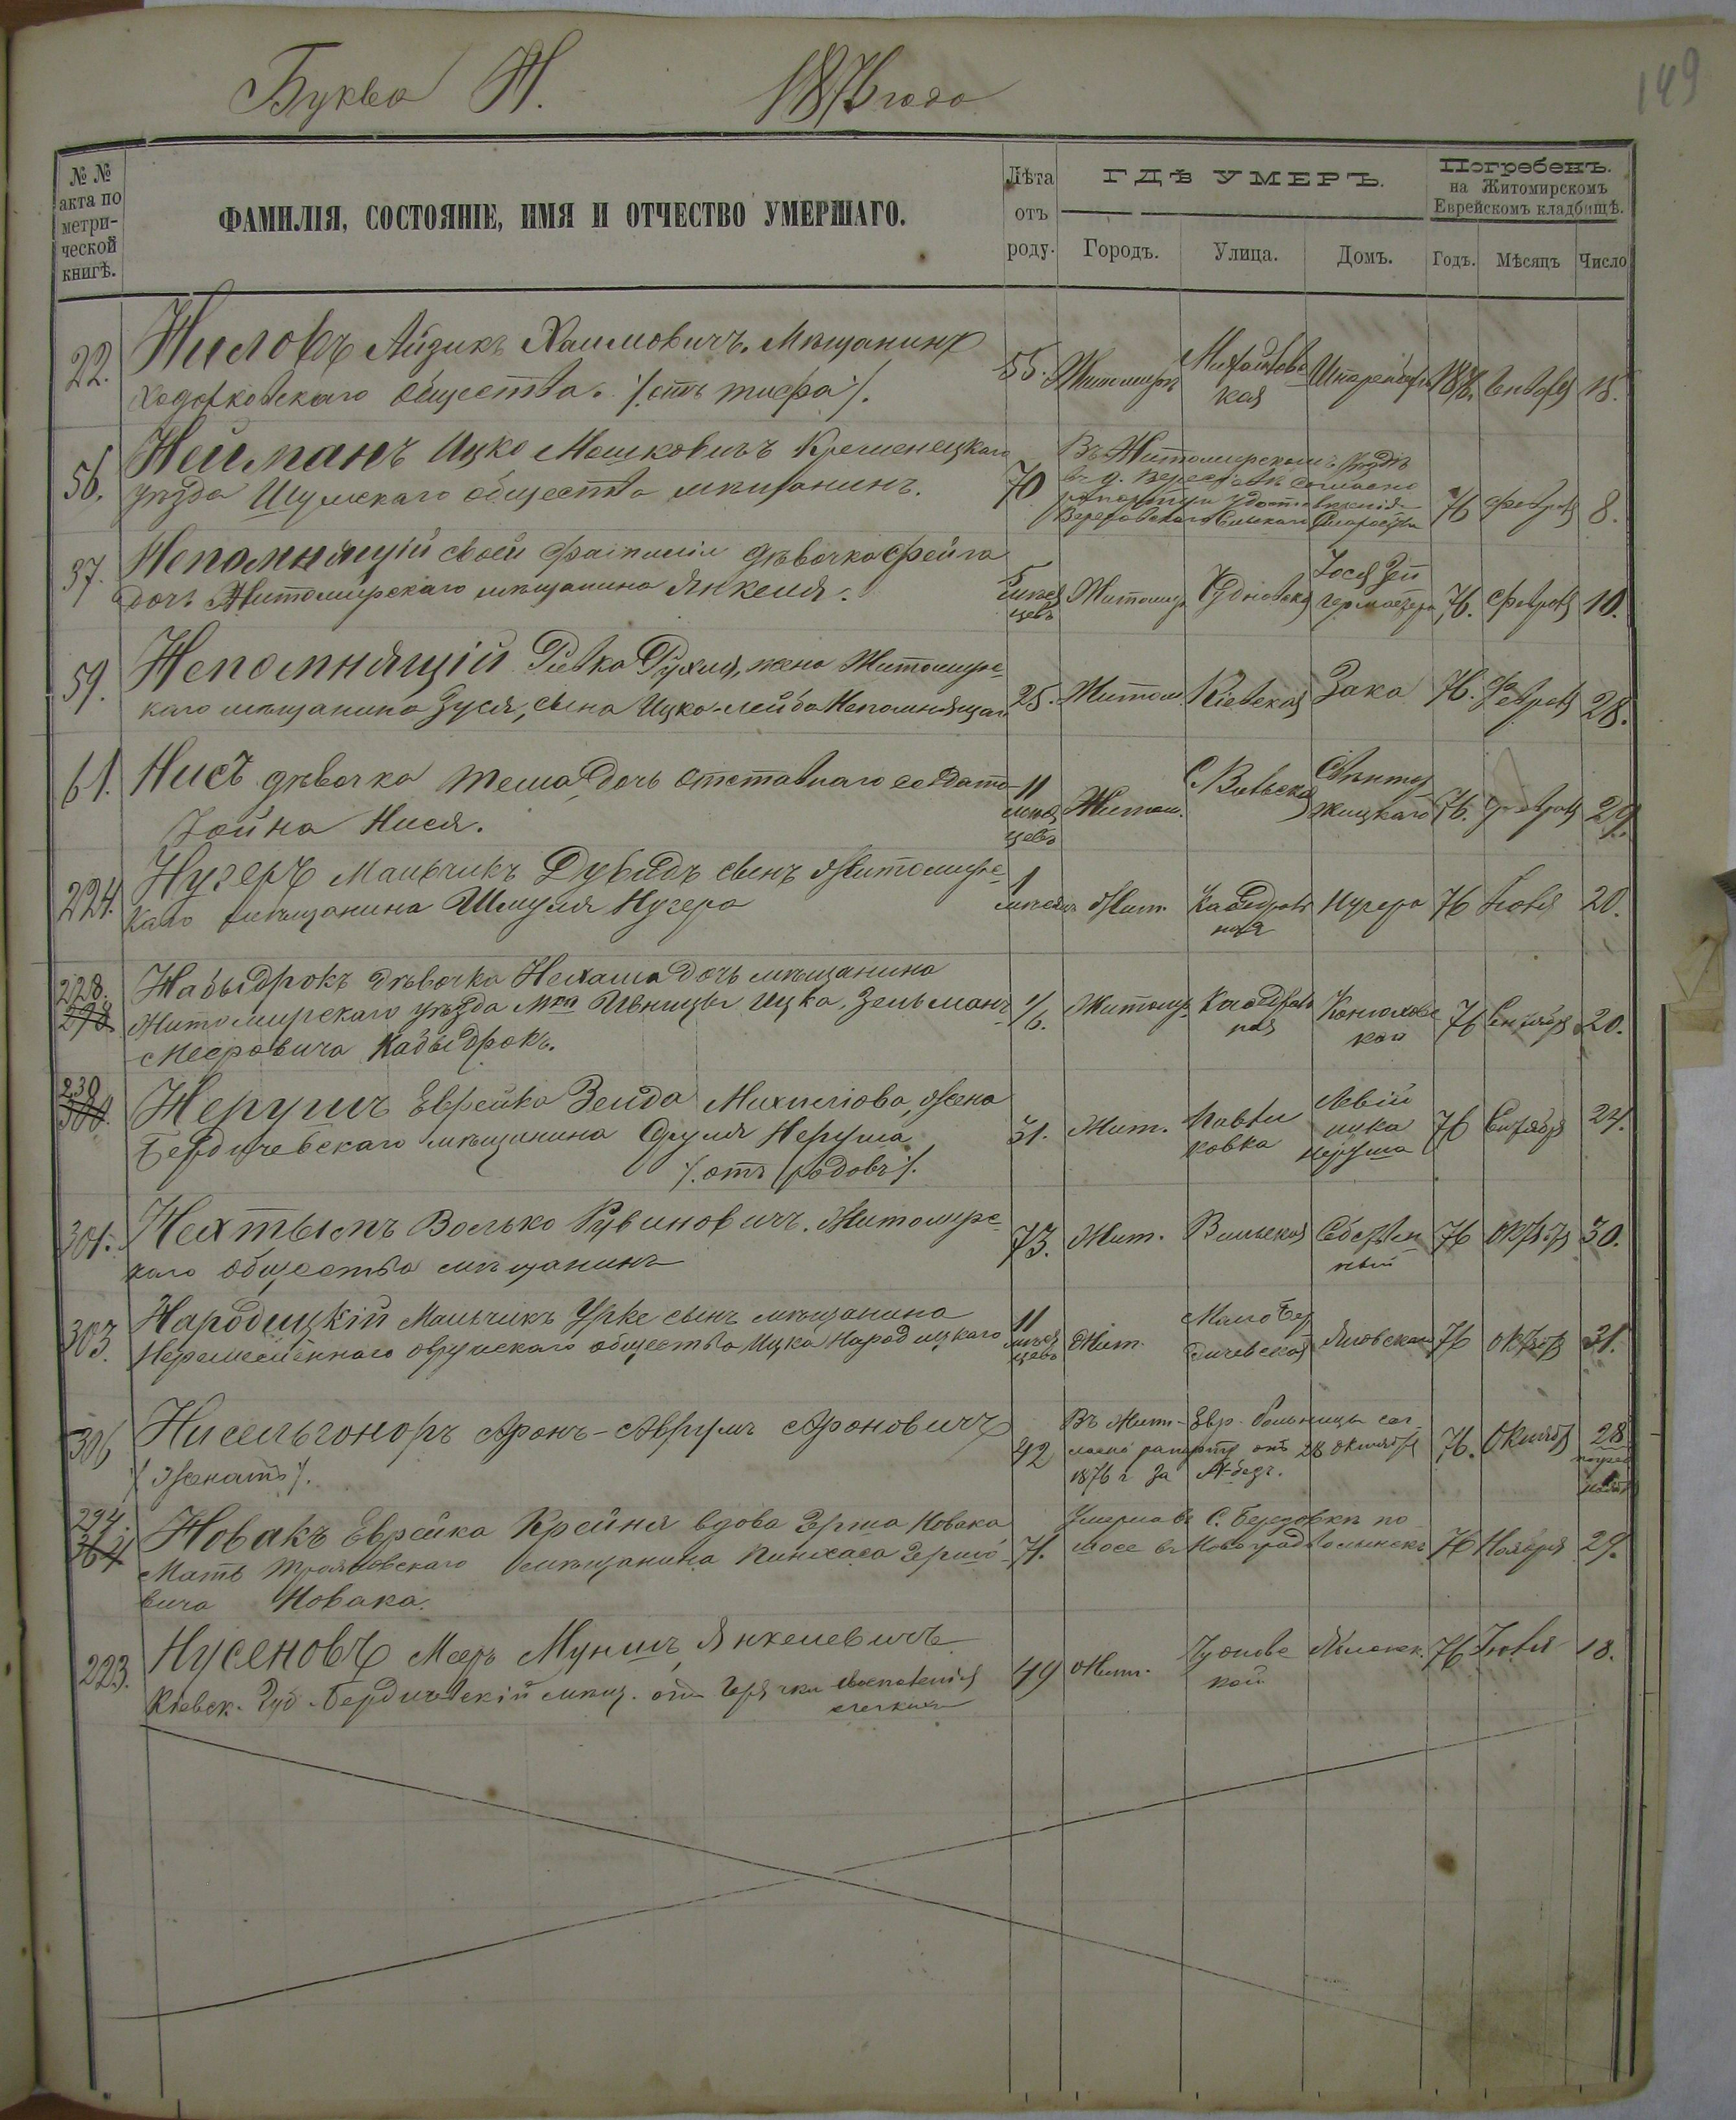 149
Буква Н. 1876 года
№ №
акта по
метри-
ческой
книгѣ.
ФАМИЛІЯ, СОСТОЯНІЕ, ИМЯ И ОТЧЕСТВО УМЕРШАГО.
Лѣта
отъ
роду.
ГДѢ УМЕРЪ.
Городъ. Улица. Домъ.
Погребенъ.
на Житомирскомъ
Еврейскомъ кладбищѣ.
Годъ. Мѣсяцъ Число
22. Ниловъ Айзикъ Хаимовичъ. Мѣщанинъ
Ходорковскаго Общества. /отъ тифа/.
55. Житомиръ Михайловс
кая 1876. Января 18.
56. Нейманъ Ицко Мошковичъ Кременецкаго
уѣзда Шумскаго общества мѣщанинъ.
70 Въ Житомирскомъ уѣздѣ
въ д. согласно
76 Февраля 8.
37. Непомнящій своей фамиліи дѣвочка Фейга
дочь Житомирскаго мѣщанина Янкеля.
5 мѣся
цевъ Житомир. Чудновская Іося 76. Февраля 10.
59. Непомнящій Ривка Рухля, жена Житомирс-
каго мѣщанина Зуся, сына Ицко-Лейба Непомнящаго
25. Житом. Кіевская Зака 76. Февраля 28.
61. Нисъ дѣвочка Теша дочь отставнаго солдата
Іойна Нися.
11
мѣся
цевъ Житом. Вильская 76. Февраля 29.
224. Нугеръ Мальчикъ Дувидъ сынъ Житомирс-
каго мѣщанина Шмуля Нугера
1
мѣсяцъ Жит. Кафедраль
ная Нугера 76 Іюля 20.
228.
278
Набыдрокъ дѣвочка Нехама дочь мѣщанина
Житомирскаго уѣзда Мка Ивницы Ицка, Зельманъ
Мееровича Набыдрокъ.
1/6. Житомир. Кафедраль
ная 76 Сентября 20.
230
300.
Нерушъ Еврейка Зейда Михиліова, жена
Бердичевскаго мѣщанина Сруля Неруша
/. отъ родовъ/.
31. Жит. Павли
ковка
Неруша 76 Сентября 24.
301. Нехтымъ Волько Рувиновичъ. Житомирс-
каго общества мѣщанинъ
73. Жит. Вильская Собствен
ный 76 Октября 30.
303. Народицкій Мальчикъ Урке сынъ мѣщанина
овручскаго общества Ицка Народицкаго
11
мѣся
цевъ Жит. Мало Бер
дичевская 76 Октября 31.
306 Нисельгоноръ Аронъ-Аврумъ Ароновичъ
/женатъ/.
42 Въ Жит. Евр. больницы сог-
ласно рапорту отъ 28 Октября
1876 г. за № безъ. 76. Октября 28
294.
364
Новакъ Еврейка Крейня вдова Герша Новака
Мать Трояновскаго мѣщанина Пинхаса Гершо-
вича Новака.
71. Умерла въ С. по
шосе въ Новоградволынскъ 76 Ноября 29.
223. Нусеновъ Меер Мунишъ Янкелевичъ
Кіевск. Губ. Бердичевскій мѣщ. отъ воспаленія
49 Жит. 76 Іюля 18.